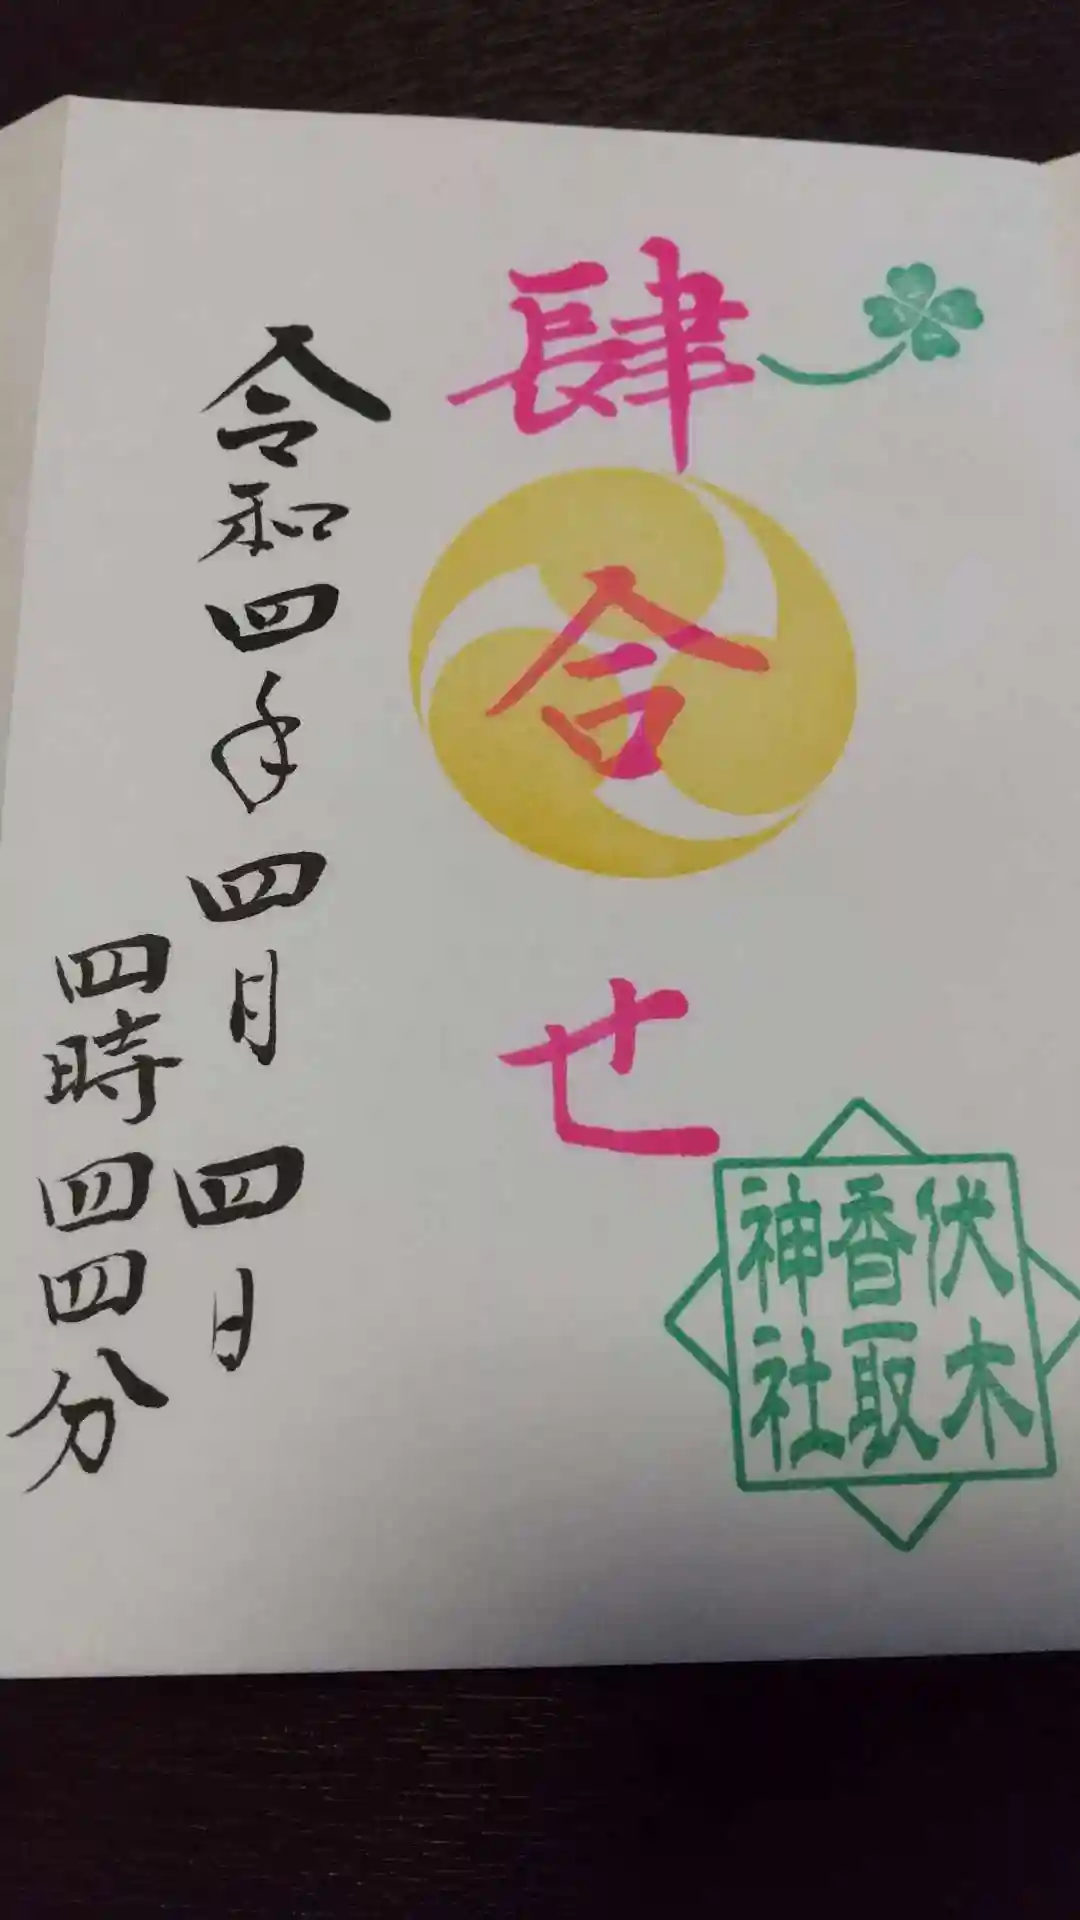 肆合せ
伏木
香取
神社
令和四年四月四日
四時四四分